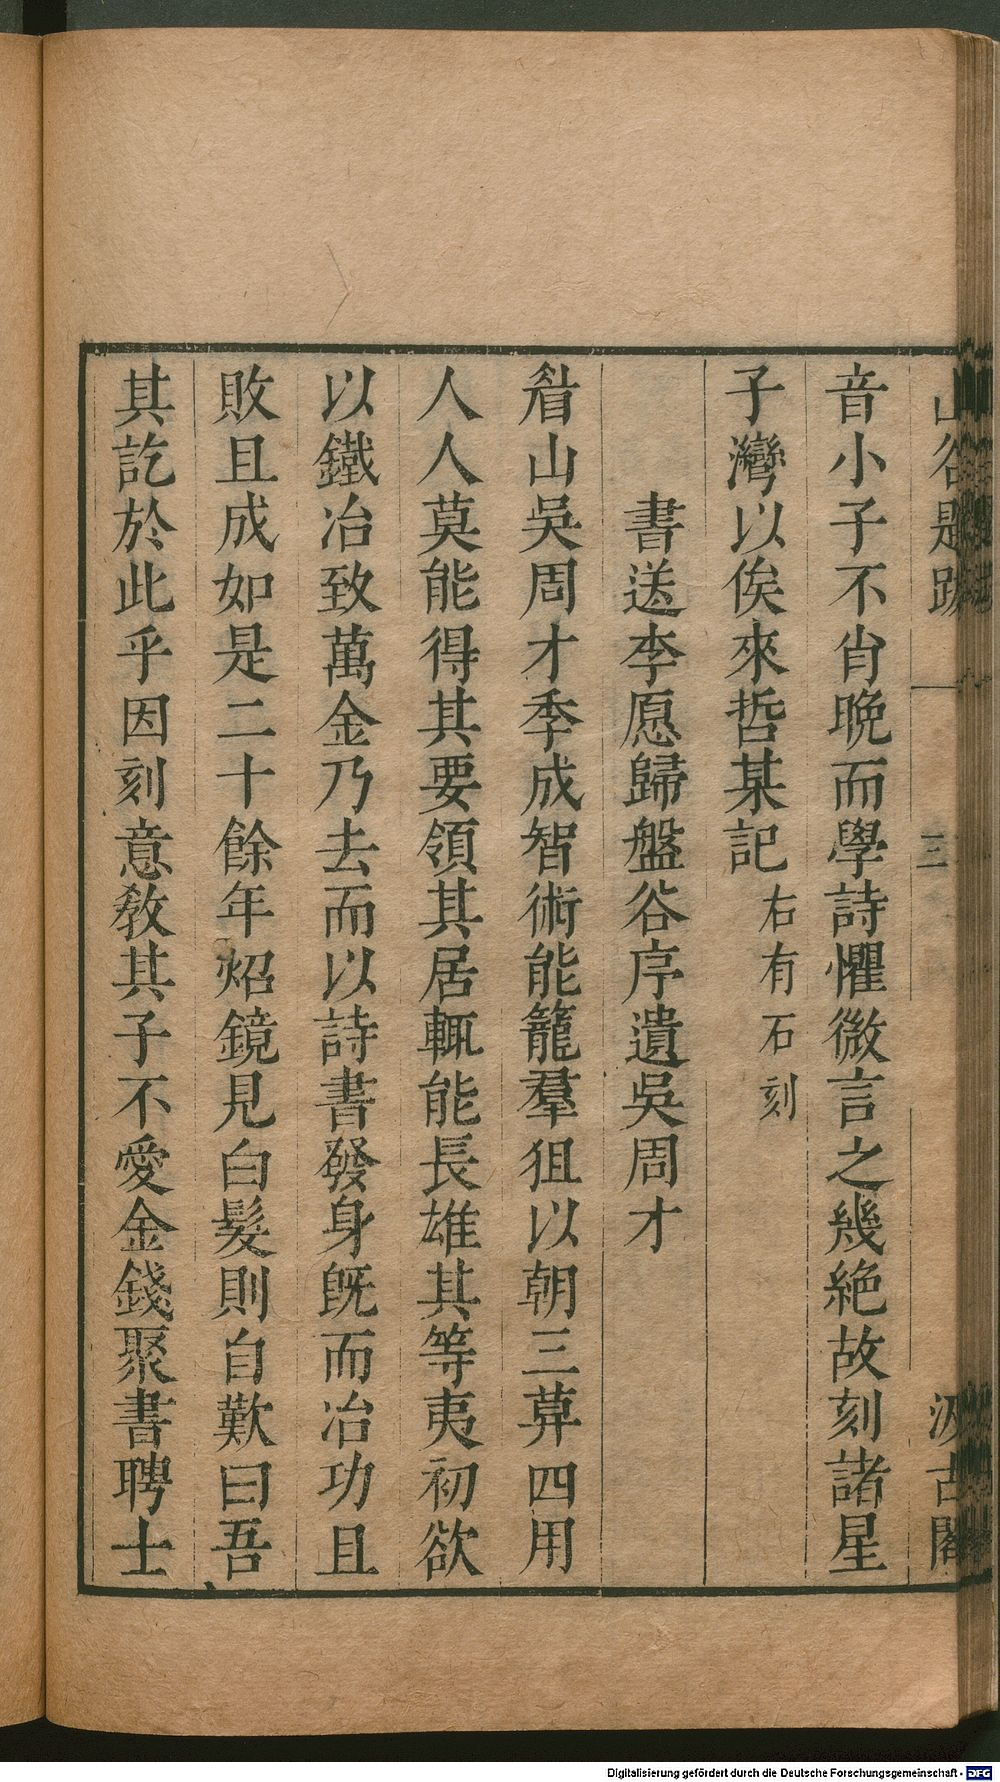 山谷題跋 三 汲古閣
音小子不肖晩而學詩懼微言之幾絶故刻諸星
子灣以俟來哲某記右有石刻
書送李愿歸盤谷序遺吳周才
眉山吳周才季成智術能籠羣狙以朝三莫四用
人人莫能得其要領其居輒能長雄其等夷初欲
以鐵冶致萬金乃去而以詩書發身旣而冶功且
敗且成如是二十餘年炤鏡見白髮則自歎曰吾
其訖於此乎因刻意敎其子不愛金錢聚書聘士
Digitalisierung gefördert durch die Deutsche Forschungsgemeinschaft - DFG